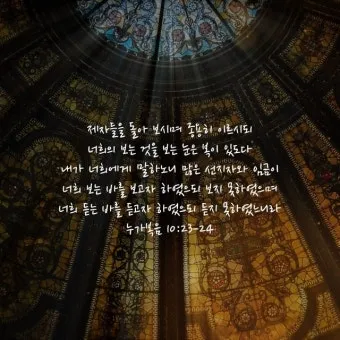 제자들을 돌아 보시며 종용히 이르시되
너희의 보는 것을 보는 눈은 복이 있도다
내가 너희에게 말하노니 많은 선지자와 임금이
너희 보는 바를 보고자 하였으되 보지 못하였으며
너희 듣는 바를 듣고자 하였으되 듣지 못하였느니라
누가복음 10:23-24